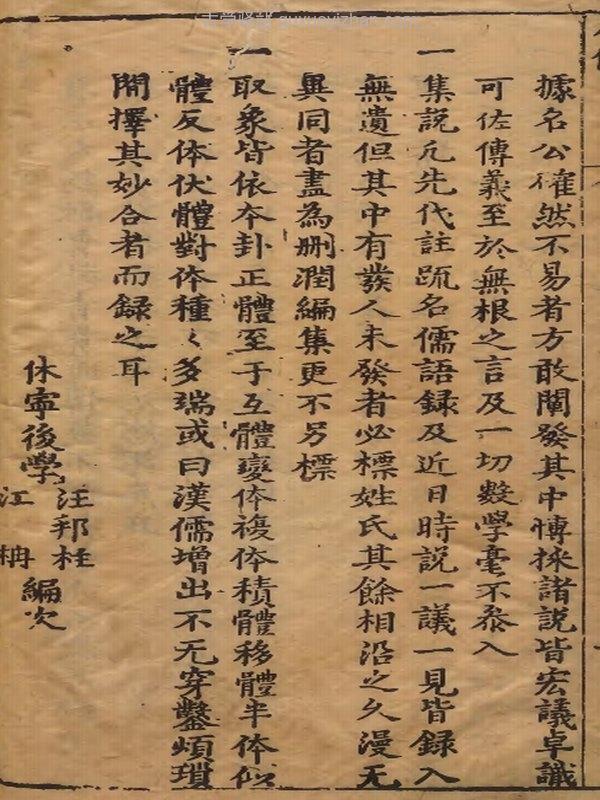 據名公確然不易者方敢闡發其中博採諸説皆宏議卓識
可佐傳義至於無根之言及一切數學毫不叅入
一集説凢先代註䟽名儒語録及近日時説一議一見皆録入
無遺但其中有發人未發者必標姓氏其餘相沿之久漫无
異同者盡為刪潤編集更不另標
一取象皆依夲卦正體至于互體變体複体積體移體半体似
體反体伏體對体種〻多瑞或曰漢儒增出不无穿鑿煩瑣
間擇其妙合者而録之耳
休寧後學
汪邦柱
江柟
編次